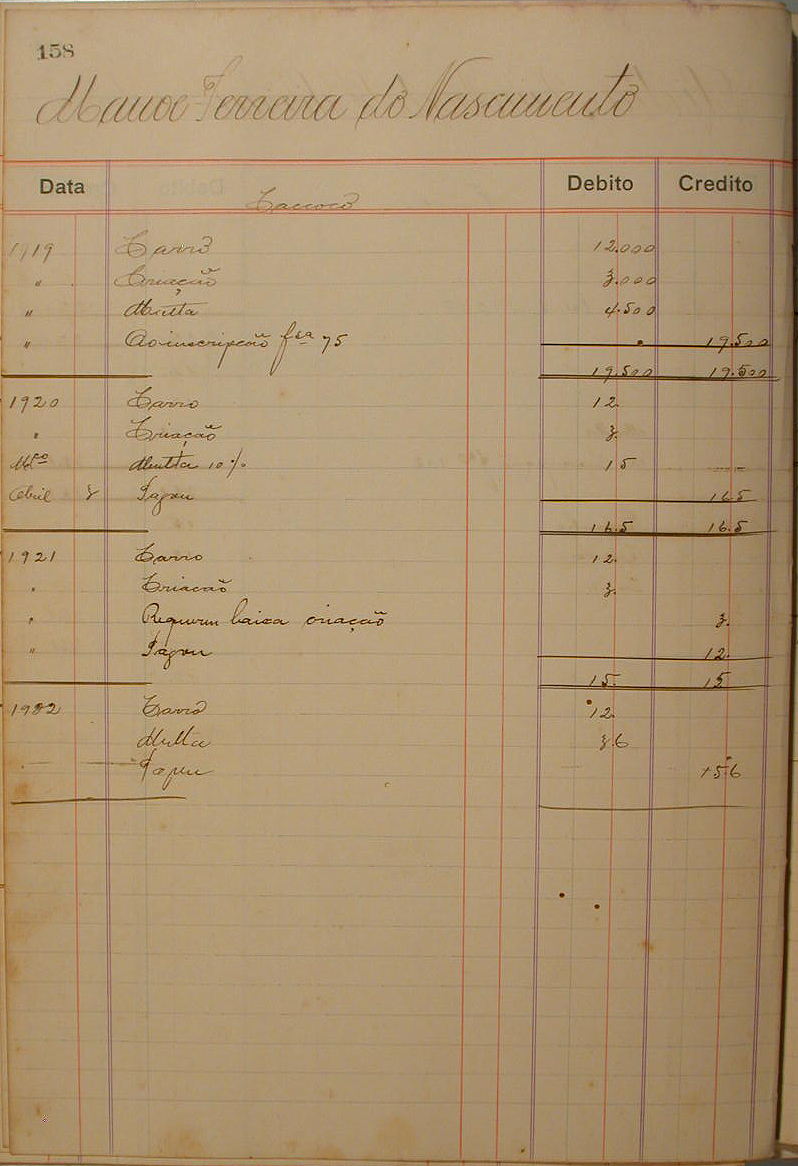 158
Manoe Ferreira do Nascimento
Data Debito Credito
1919 Carro 12.000
" Criação 3.000
" Multa 4.500
" Ao inscripção fsa 75 19.500
19.500 19.500
1920 Carro 12.
" Criação 3.
Mço Multa 10% 15
Abril 8 Pagou 16.5
16.5 16.5
1921 Carro 12.
" Criacão 3.
" Requereu baixa criação 3.
" Pagou 12.
15. 15
1922 Carro 12.
Multa 3.6
Pagou 15.6